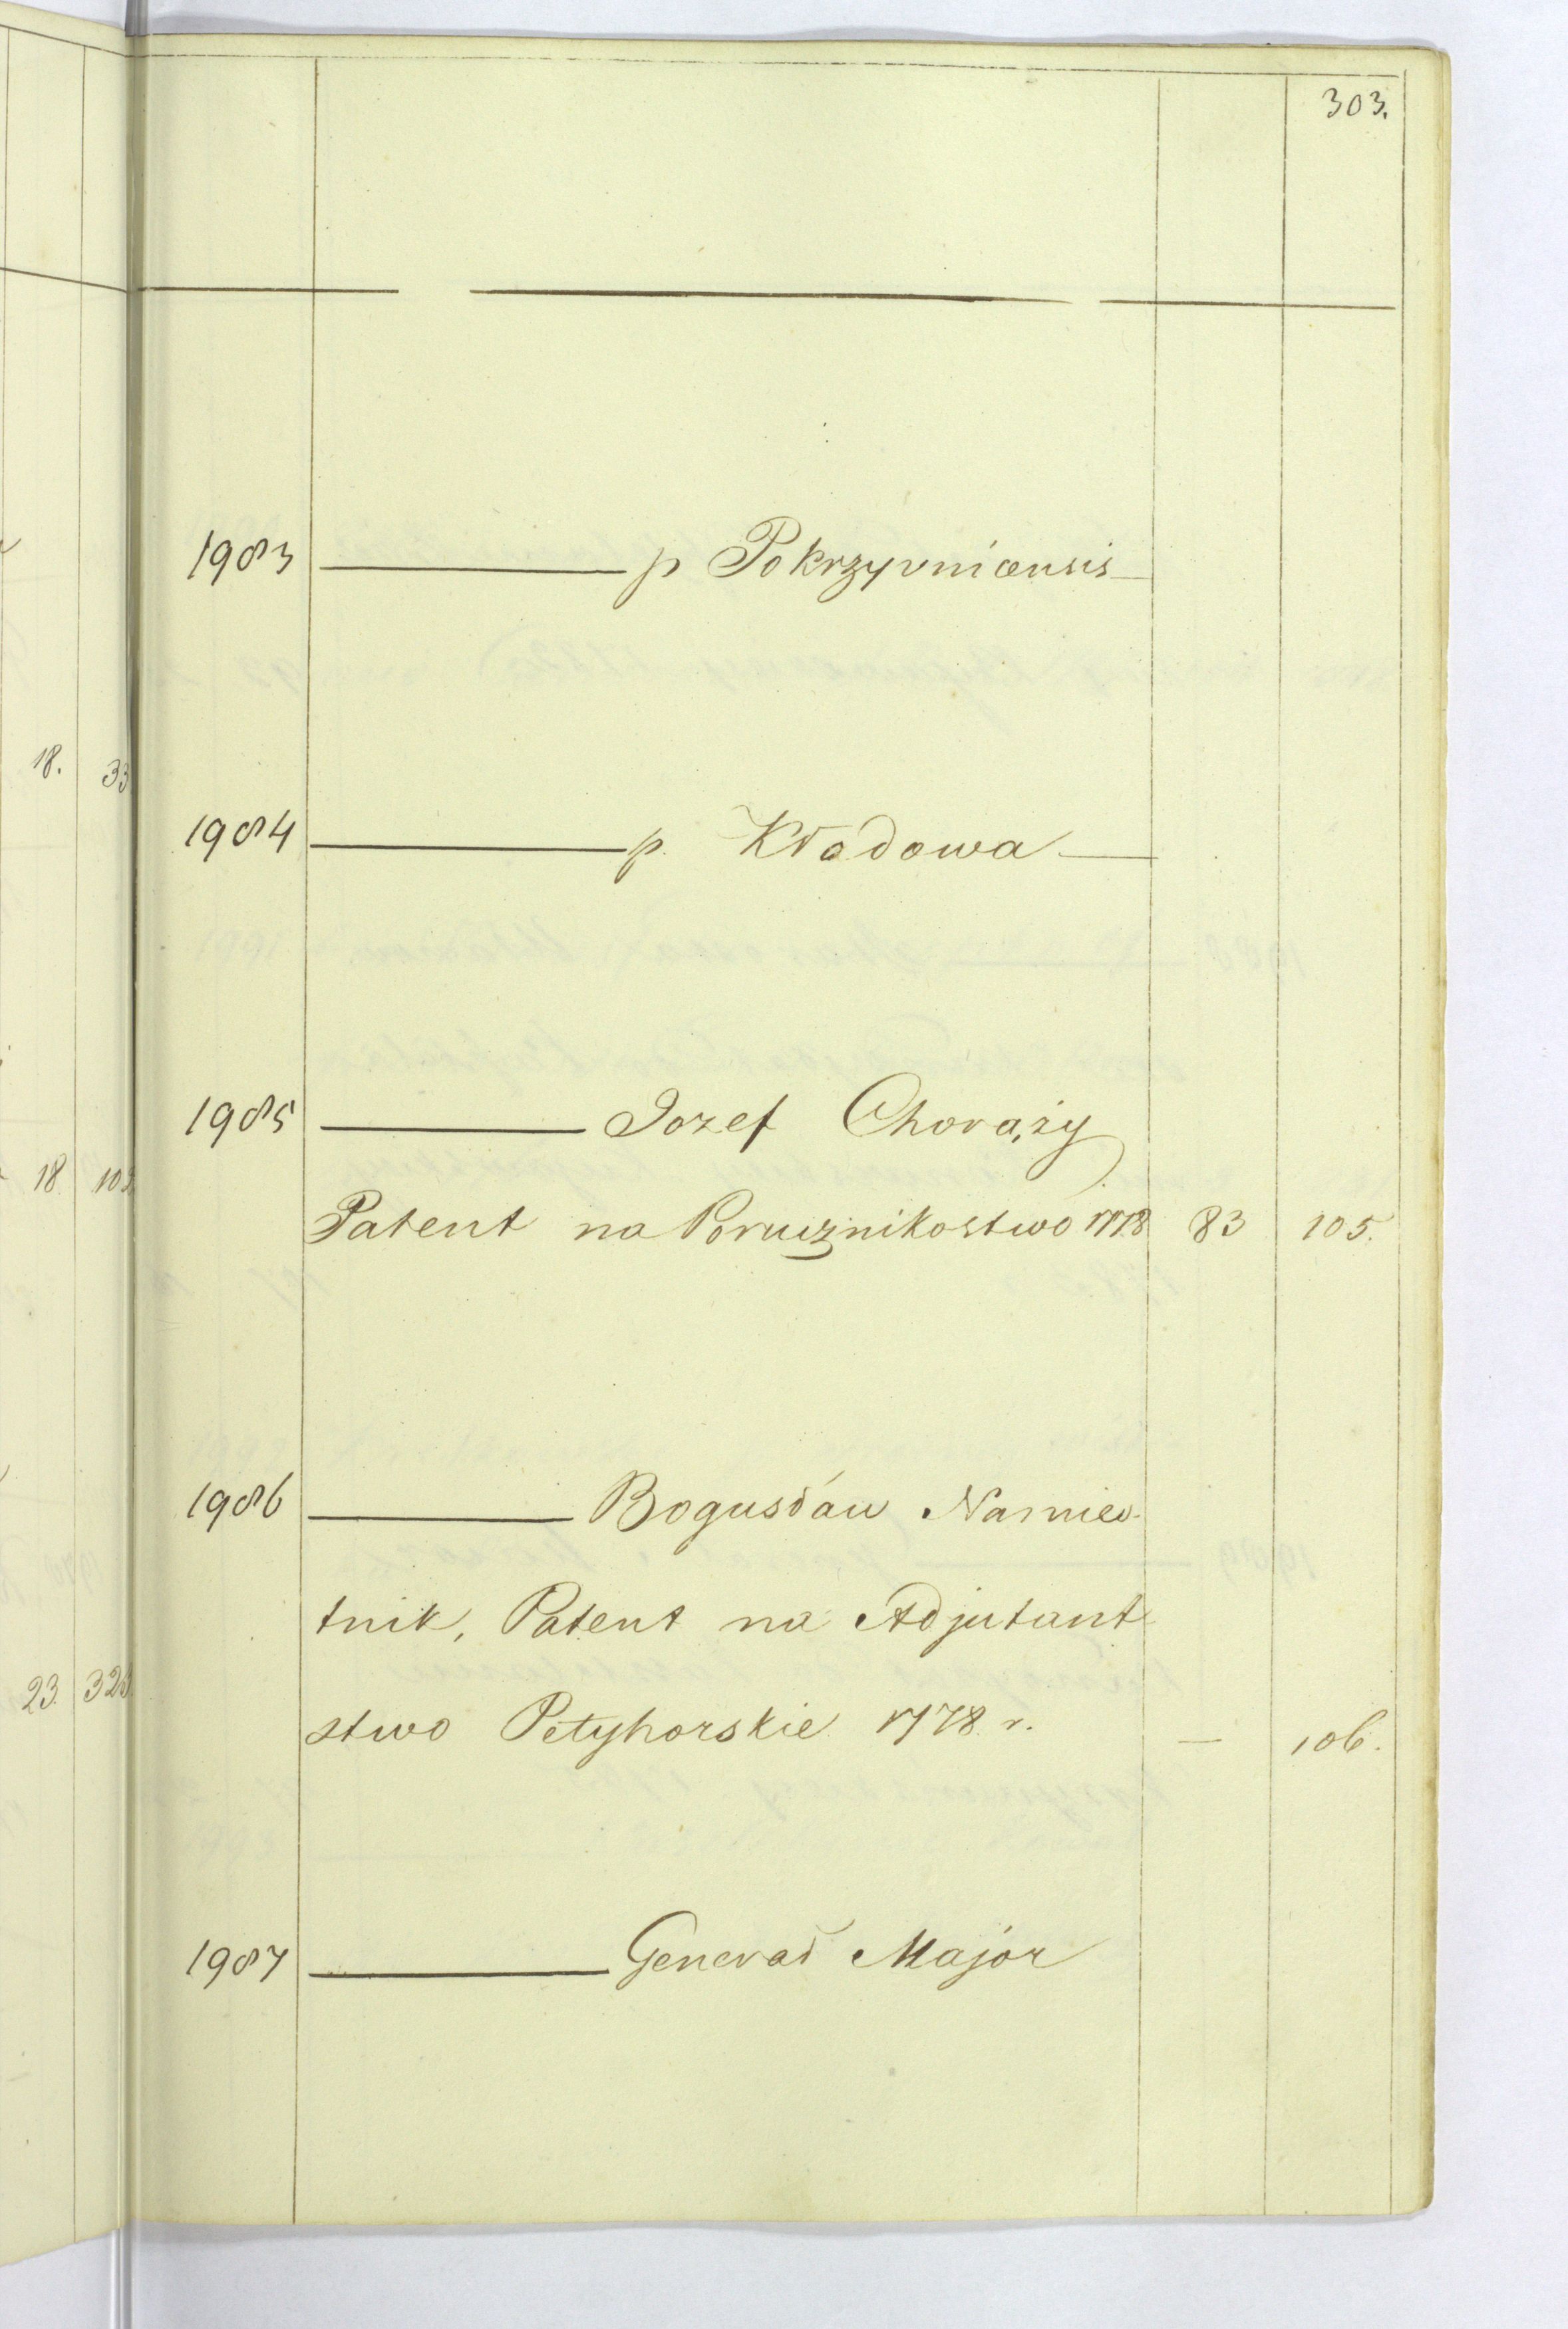 303.
1983 ——— p Pokrzyvnicensis —
1984 ——— p. Kłodowa —
1985 ——— Jozef Chorąży
Patent na Porucznikostwo 1778 83 105.
1986 ——— Bogusław Namies-
tnik, Patent na Adjutant-
stwo Petyhorskie 1778 r. — 106.
1987 ——— Generał Major
18. 33
18 103
23. 328